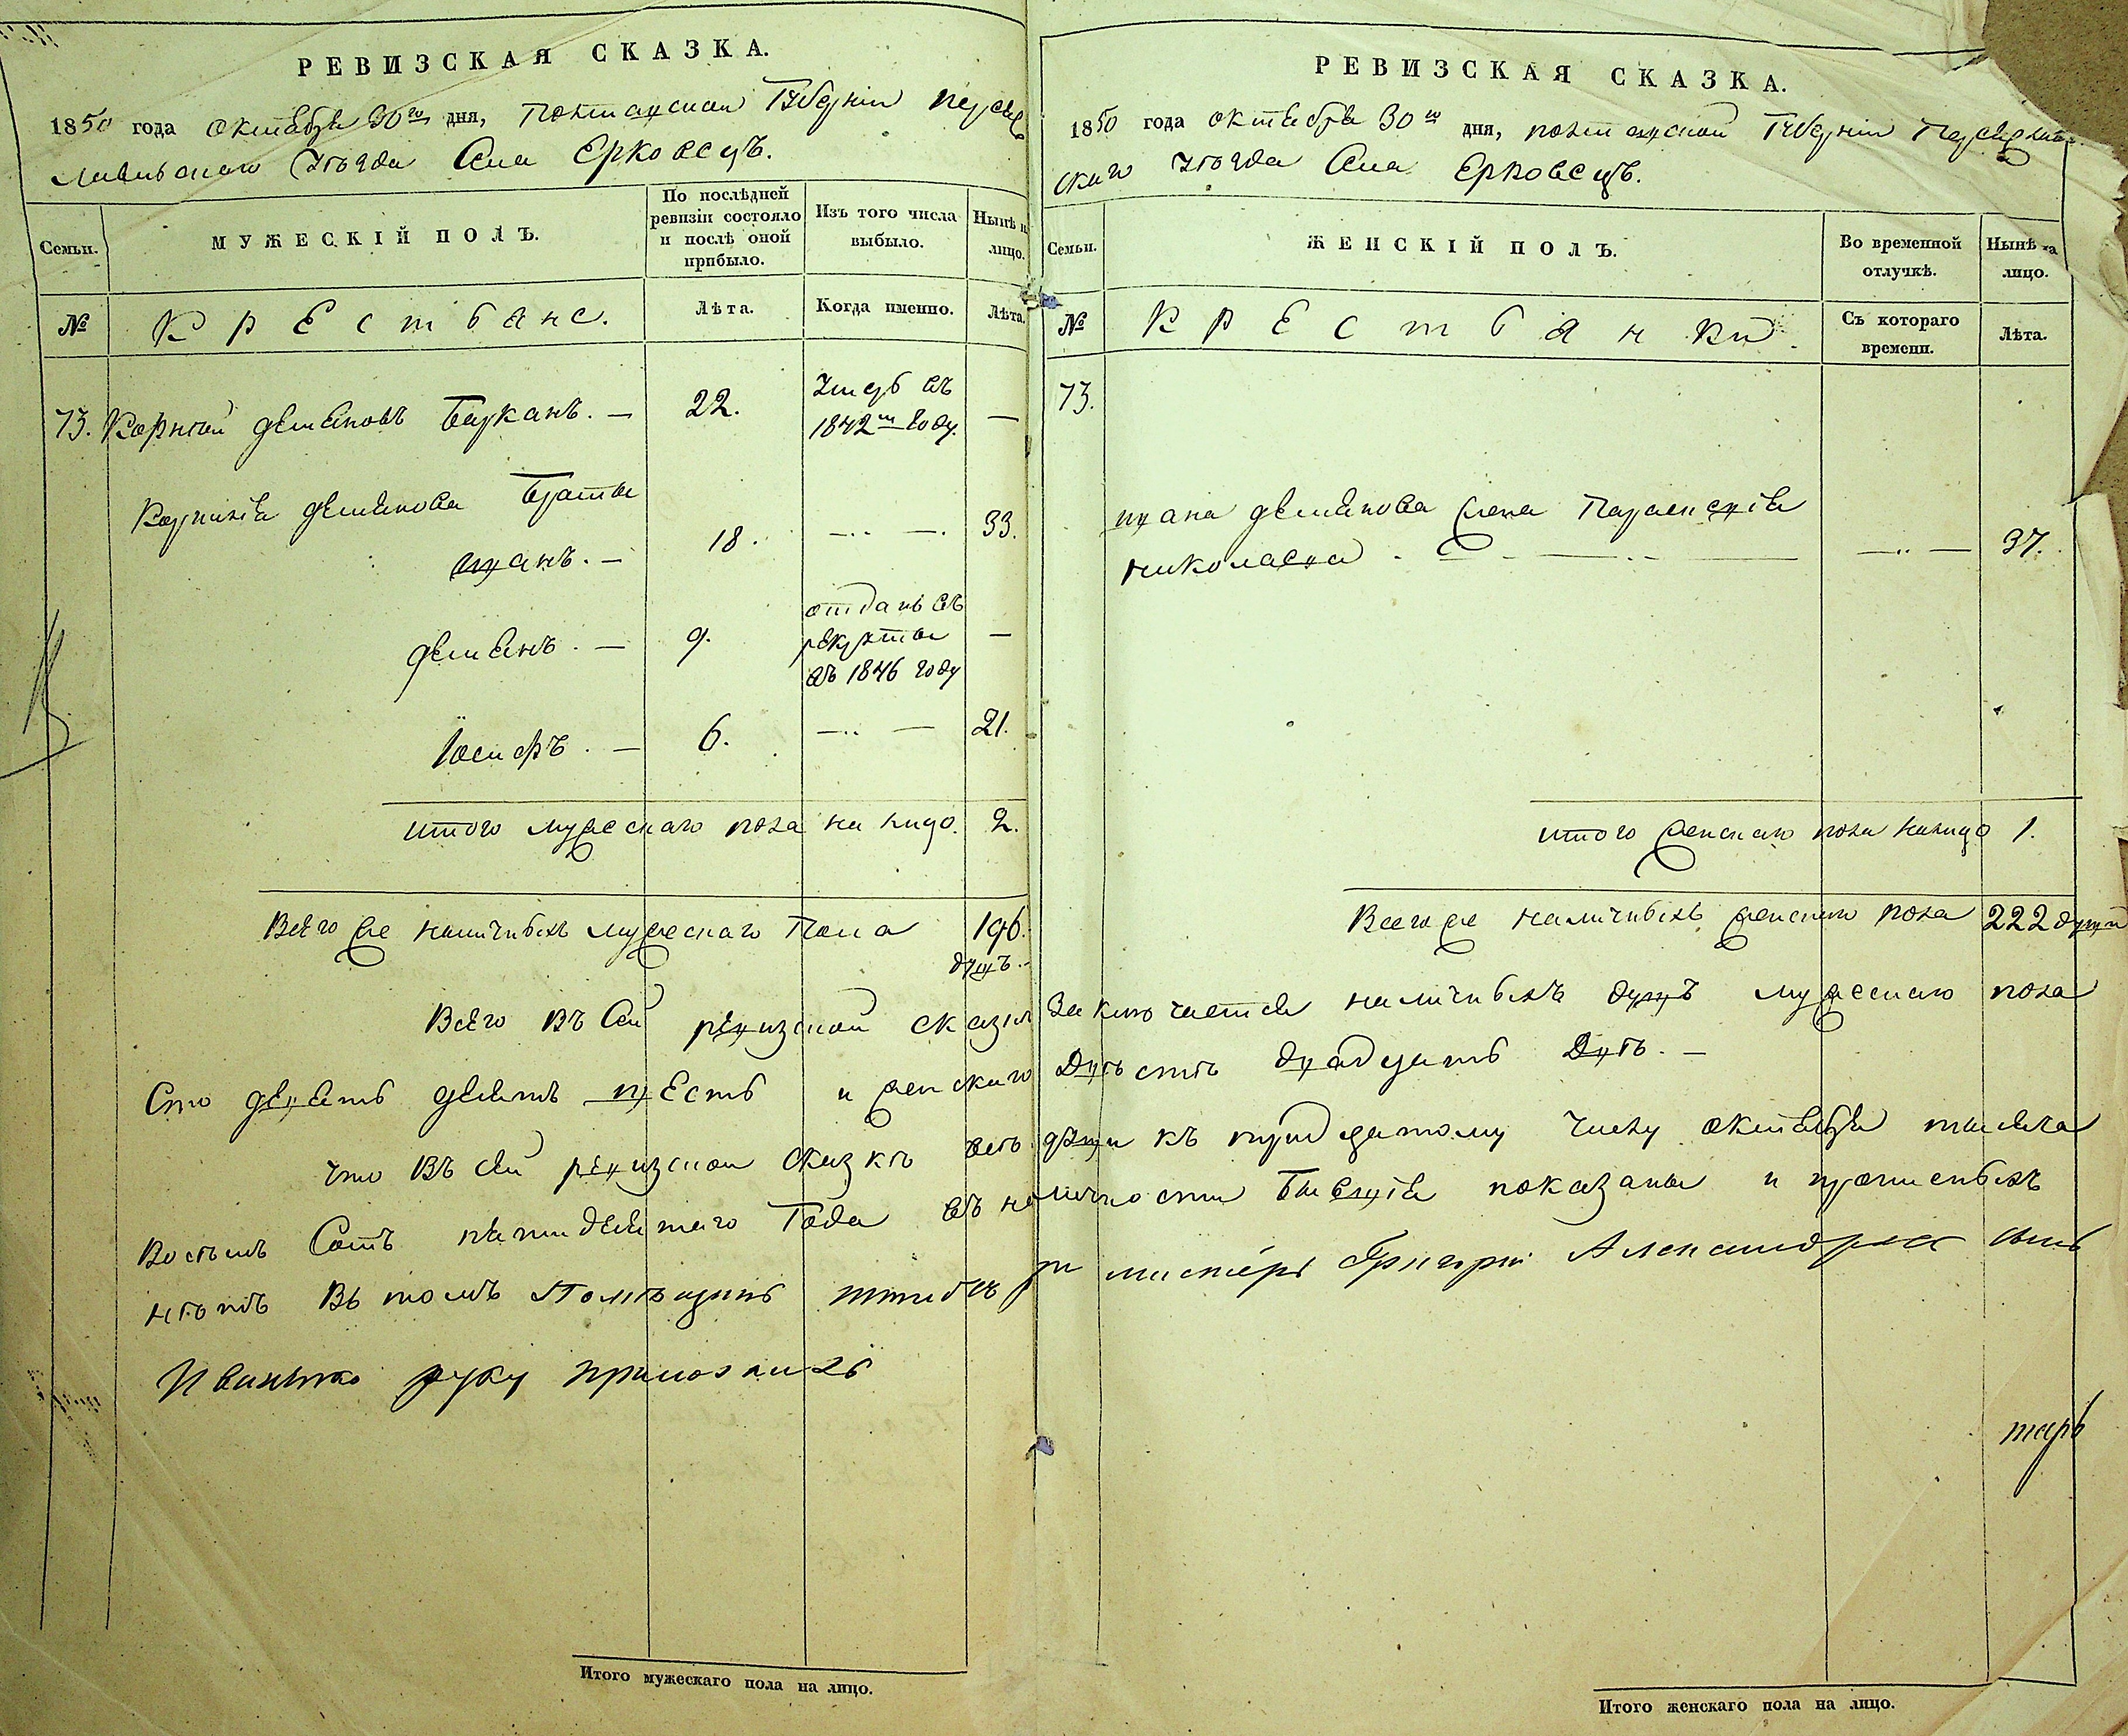 РЕВИЗСКАЯ СКАЗКА.
1850 года октября 30го дня, Полтавской Губерніи Переяс
лавьского Уѣзда Села Ерковецъ.
Семьи.
МУЖЕСКІЙ ПОЛЪ.
По послѣдней
ревизіи состояло
и послѣ оной
прибыло.
Изъ того числа
выбыло.
Нынѣ н
лицо.
№
Крестьяне.
Лѣта.
Когда именно.
Лѣта.
73. Корній Демяновъ Бауканъ. — 22. Умеръ въ
1842м году. —
Корнилія Демянова Братья
Иванъ. — 18. — 33.
Демянъ. — 9. отданъ въ
рекруты
въ 1846 году —
Іосифъ. — 6. — 21.
Итого мужескаго пола на лицо. 2.
Всего же наличныхъ мужескаго Пола 196.
душъ.
Итого мужескаго пола на лицо.
РЕВИЗСКАЯ СКАЗКА.
1850 года октября 30го дня, Полтавской Губерніи Переяслав
скаго Уѣзда Села Ерковецъ.
Семьи.
ЖЕНСКІЙ ПОЛЪ.
Во временной
отлучкѣ.
Нынѣ на
лицо.
№
Крестьянки.
Съ котораго
времени.
Лѣта.
73.
Ивана Демянова жена Параскевія
Николаева — 37.
Итого женскаго пола налицо 1.
Всего же наличныхъ женскаго пола 222 души
Всего въ сей ревизской сказкѣ заключается наличныхъ душъ мужескаго пола
Сто девять десятъ шесть и женскаго Двѣсти двадцать Двѣ. —
что въ сей ревизской сказкѣ всѣ души къ тридцатому числу октября тысяча
Восемь Сотъ пятидесятаго Года въ наличности бывшія показаны и прописныхъ
нѣтъ въ томъ Помѣщикъ штабъ ротмистеръ Григорій Александровъ сынъ
Иваненко руку приложилъ
Итого женскаго пола на лицо.